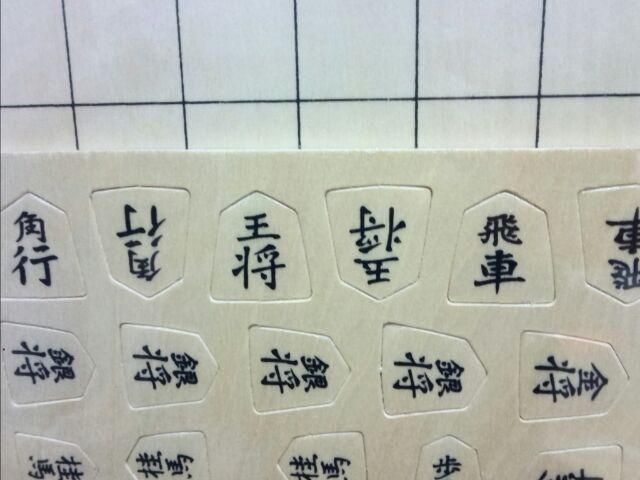 角行
角行
王将
玉将
飛車
飛車
銀将
銀将
銀将
銀将
金将
桂馬